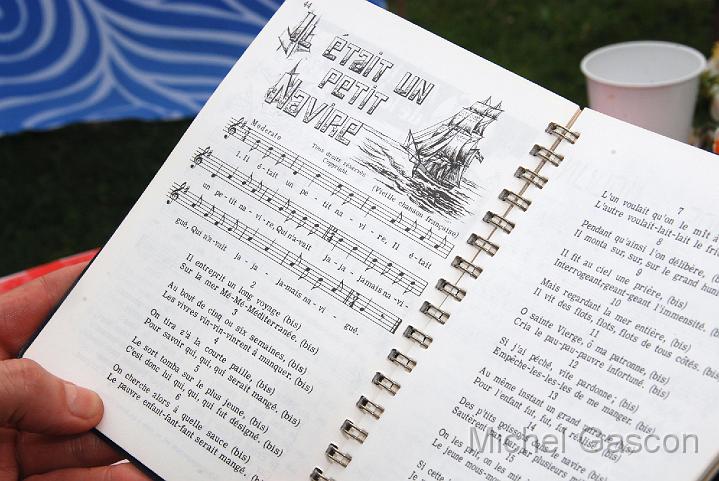 44
Il était un
petit
Navire
Moderato
Tous droits réservés
Copyright.
(Vieille chanson française)
1. Il é - tait un pe - tit na - vi - re, Il é - tait
un pe - tit na - vi - re, Qui n'a - vait ja - ja - ja - mais na - vi -
gué, Qui n'a - vait ja - ja - jamais na - vi - gué.
2
Il entreprit un long voyage (bis)
Sur la mer Mé-Mé-Méditerranée. (bis)
3
Au bout de cinq ou six semaines, (bis)
Les vivres vin-vin-vinrent à manquer. (bis)
4
On tira z'à la courte paille, (bis)
Pour savoir qui, qui, qui serait mangé. (bis)
5
Le sort tomba sur le plus jeune, (bis)
C'est donc lui qui, qui, qui fut désigné. (bis)
6
On cherche alors à quelle sauce (bis)
Le pauvre enfant-fant-fant serait mangé. (bis)
7
L'un voulait qu'on le mît à
L'autre voulait-lait-lait le
8
Pendant qu'ainsi l'on délibère,
Il monta sur, sur, sur le grand
9
Il fit au ciel une prière, (bis)
Interrogeant,geant,geant l'immensité.
10
Mais regardant la mer entière, (bis)
Il vit des flots, flots, flots de tous côtés. (bis)
11
O sainte Vierge, ô ma patronne, (bis)
Cria le pau-pau-pauvre infortuné. (bis)
12
Si j'ai péché, vite pardonne; (bis)
Empêche-les-les-les de me manger. (bis)
13
Au même instant un grand
Pour l'enfant fut, fut, fut réalisé.
14
Des p'tits poissons dans le navire (bis)
Sautèrent par plusieurs
15
On les prit, on les mit
Le jeune mous-mou
Si cette
Michel Gascon